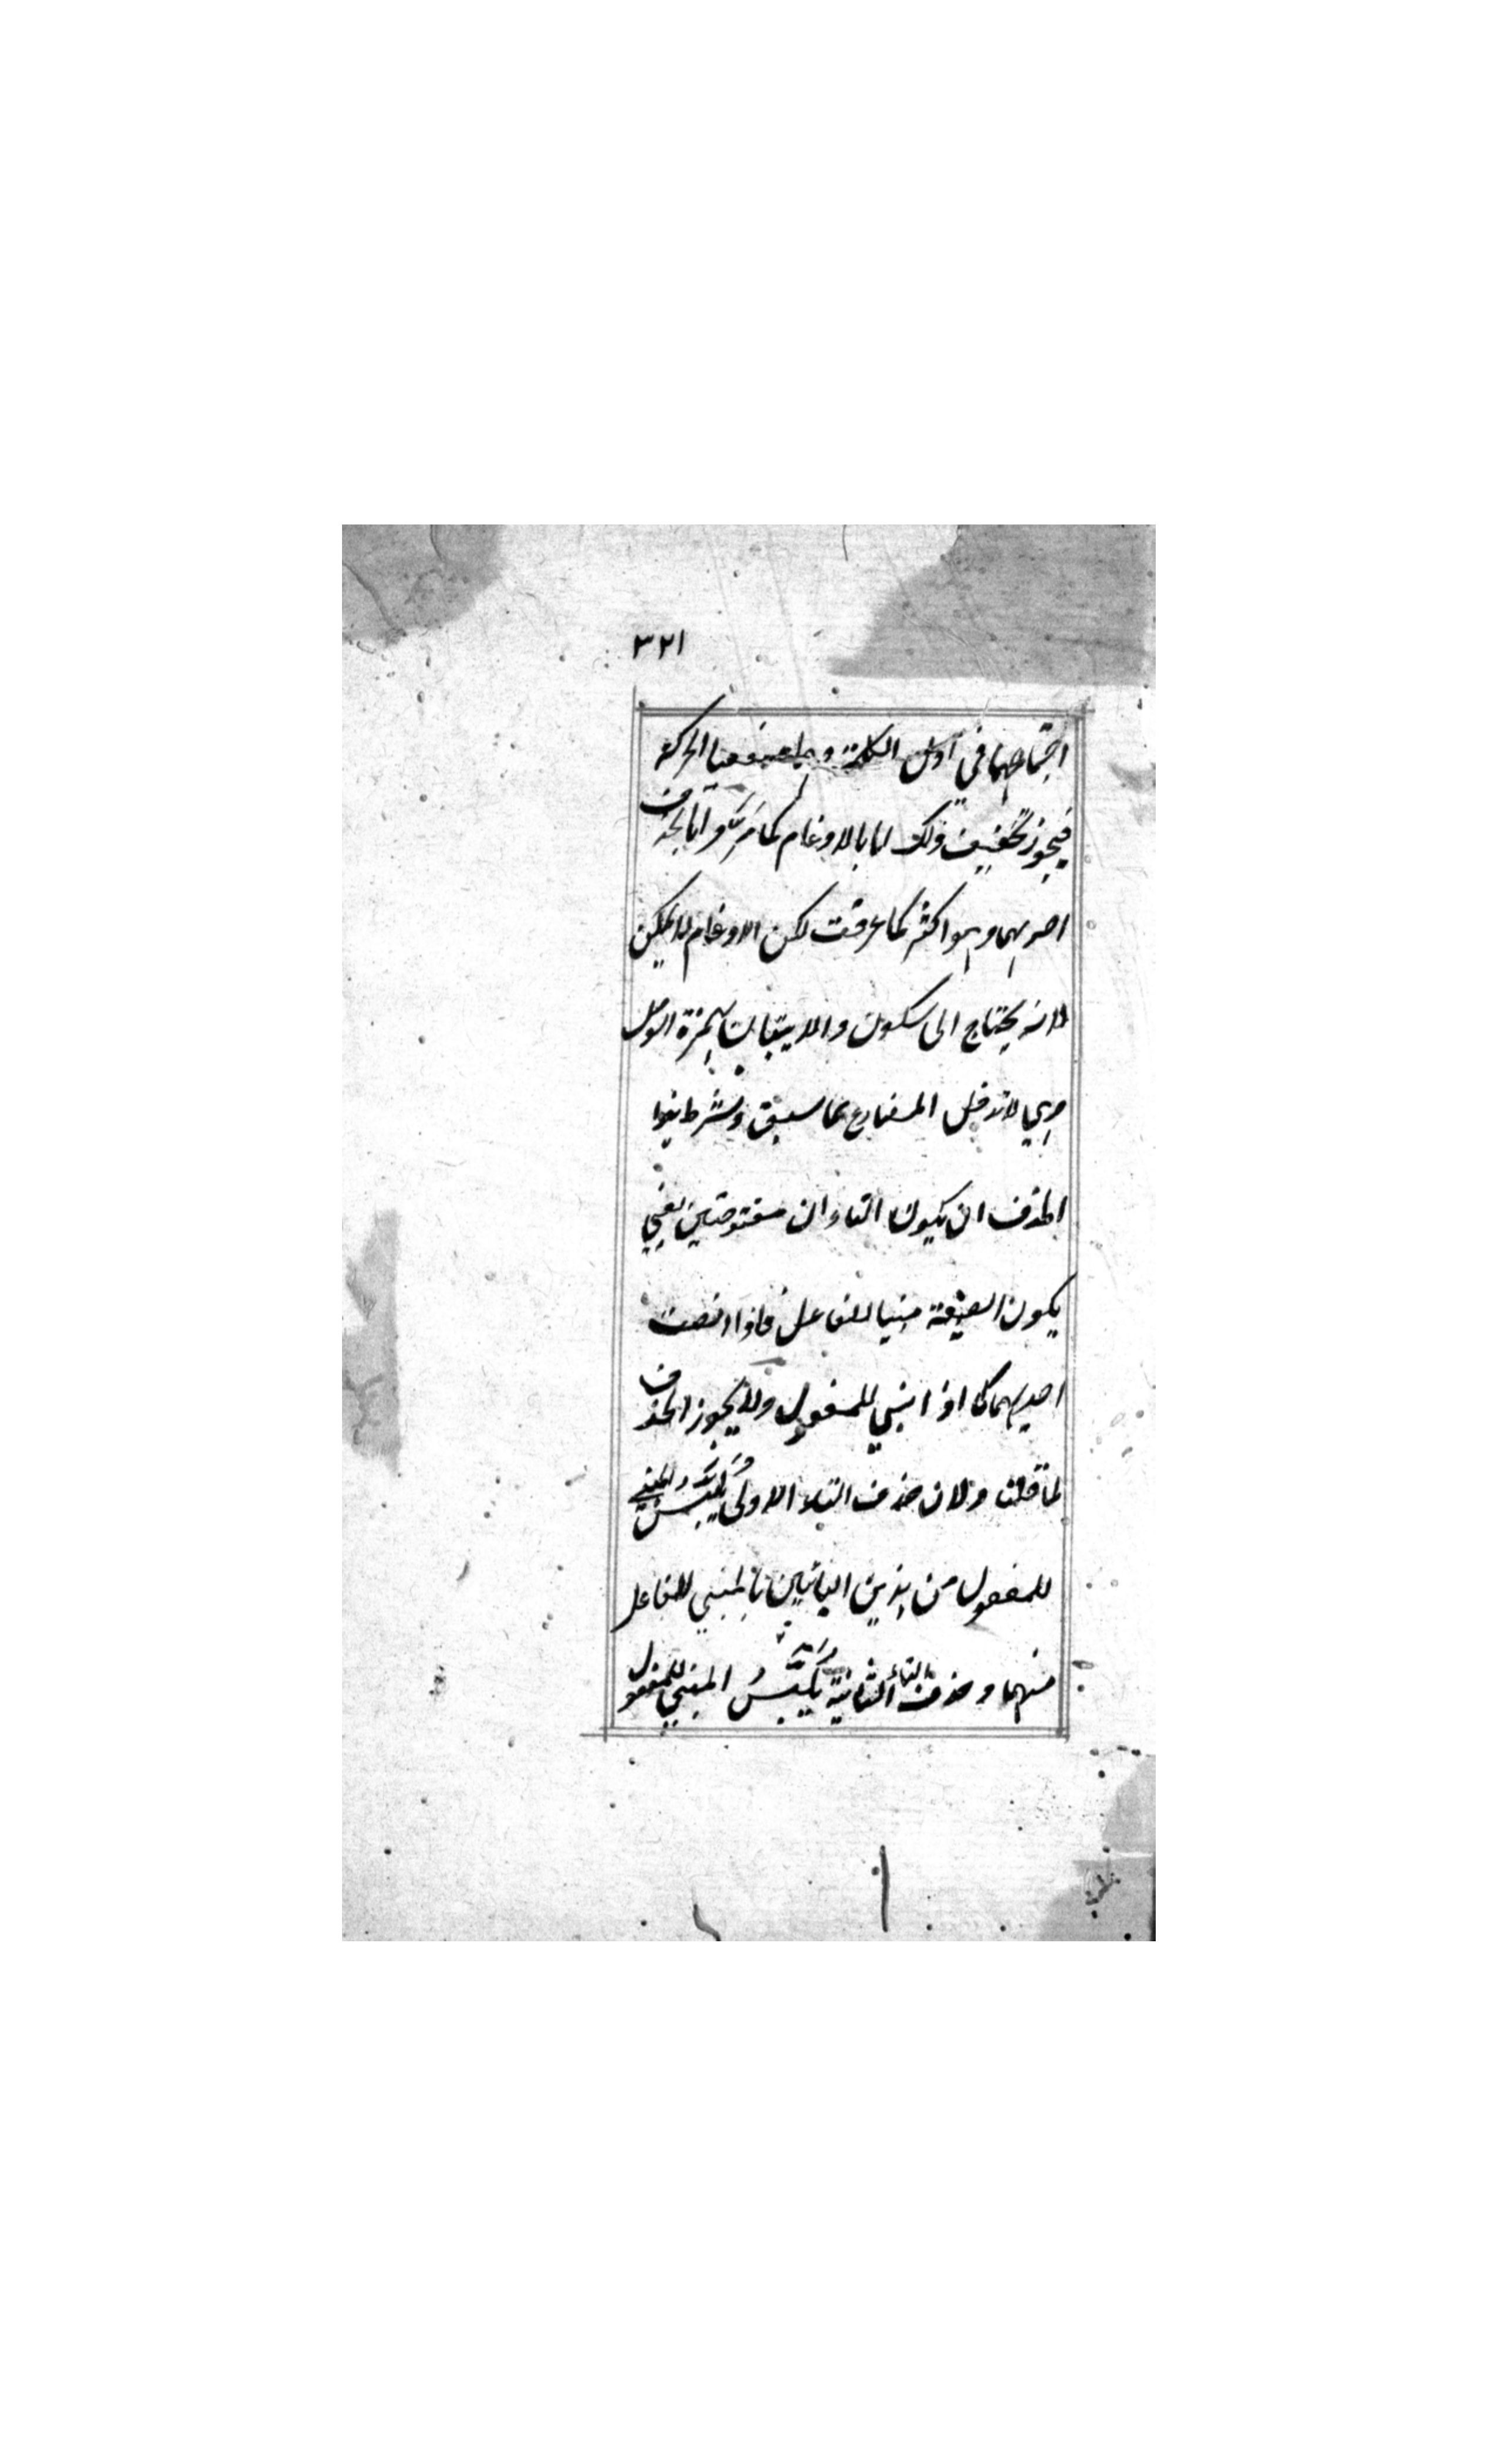 ٣٢١
اجتماعهما في اول الكلمة الحركة
فيجوز تخفيف ذلك اما بالادغام كما مر واما بالحذف
احديهما وهو اكثر كما عرفت لكن الادغام لا يمكن
لانه يحتاج الى سكون والابتداء بهمزة الوصل
وهي لا تدخل المضارع كما سبق وشرط هذا
الحذف ان يكون التاءان مفتوحتين يعني
يكون الصيغة مبنيا للفاعل فاذا انضمت
احديهما كما اذا ابني للمفعول ولا يجوز الحذف
لما قلنا ولان حذف التاء الاولى يلتبس المبني
للمفعول من هذين البابين بالمبني للفاعل
منهما وحذف التاء الثانية يلتبس المبني للمفعول